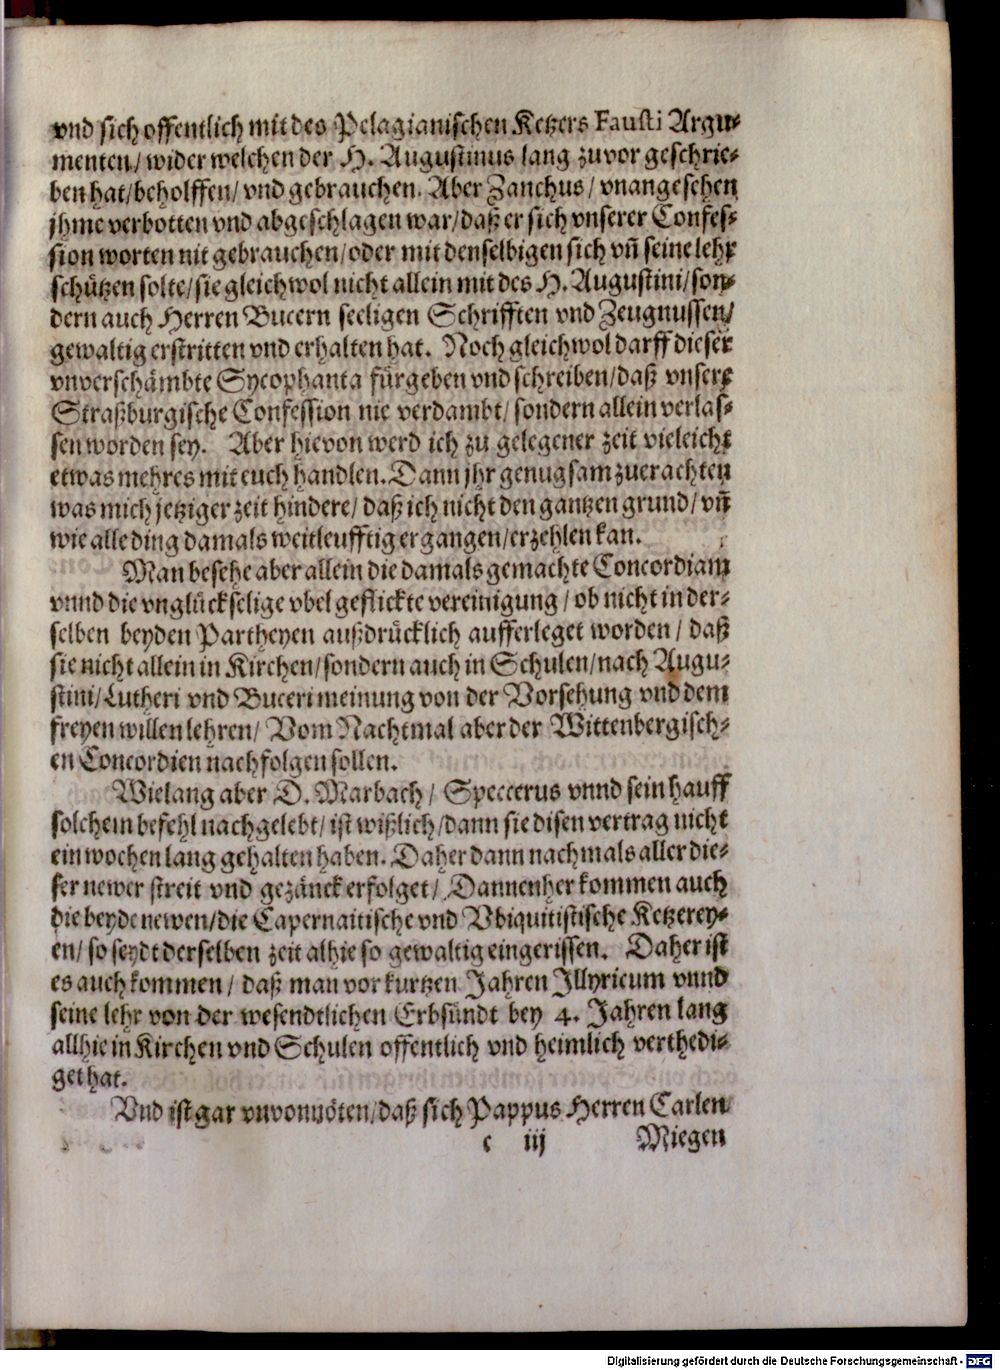 vnd sich offentlich mit des Pelagianischen Ketzers Fausti Argu⸗
menten/ wider welchen der H. Augustinus lang zuvor geschrie⸗
ben hat/beholffen/ vnd gebrauchen. Aber Zanchus/ vnangesehen
jhme verbotten vnd abgeschlagen war/daß er sich vnserer Confes⸗
sion worten nit gebrauchen/oder mit denselbigen sich vñ seine lehr
schützen solte/sie gleichwol nicht allein mit des H. Augustini/son⸗
dern auch Herren Bucern seeligen Schrifften vnd Zeugnussen/
gewaltig erstritten vnd erhalten hat. Noch gleichwol darff dieser
vnverschämbte Sycophanta fürgeben vnd schreiben/daß vnsere
Straßburgische Confession nie verdambt/ sondern allein verlas⸗
sen worden sey. Aber hievon werd ich zu gelegener zeit vieleicht
etwas mehres mit euch handlen. Dann jhr genugsam zuerachten
was mich jetziger zeit hindere/ daß ich nicht den gantzen grund/ vñ
wie alle ding damals weitleufftig ergangen/erzehlen kan.
Man besehe aber allein die damals gemachte Concordiam
vnnd die vnglückselige vbel geflickte vereinigung/ ob nicht in der⸗
selben beyden Partheyen außdrücklich aufferleget worden/ daß
sie nicht allein in Kirchen/sondern auch in Schulen/nach Augu⸗
stini/Lutheri vnd Buceri meinung von der Vorsehung vnd dem
freyen willen lehren/ Vom Nachtmal aber der Wittenbergisch⸗
en Concordien nachfolgen sollen.
Wielang aber D. Marbach/ Speccerus vnnd sein hauff
solchem befehl nachgelebt/ ist wißlich/dann sie disen vertrag nicht
ein wochen lang gehalten haben. Daher dann nachmals aller die⸗
ser newer streit vnd gezänck erfolget/ Dannenher kommen auch
die beyde newen/die Capernaitische vnd Vbiquitistische Ketzerey⸗
en/ so seydt derselben zeit alhie so gewaltig eingerissen. Daher ist
es auch kommen/ daß man vor kurtzen Jahren Illyricum vnnd
seine lehr von der wesendtlichen Erbsündt bey 4. Jahren lang
allhie in Kirchen vnd Schulen offentlich vnd heimlich verthedi⸗
get hat.
Vnd ist gar vnvonnöten/daß sich Pappus Herren Carlen
c iij Miegen
Digitalisierung gefördert durch die Deutsche Forschungsgemeinschaft - DFG